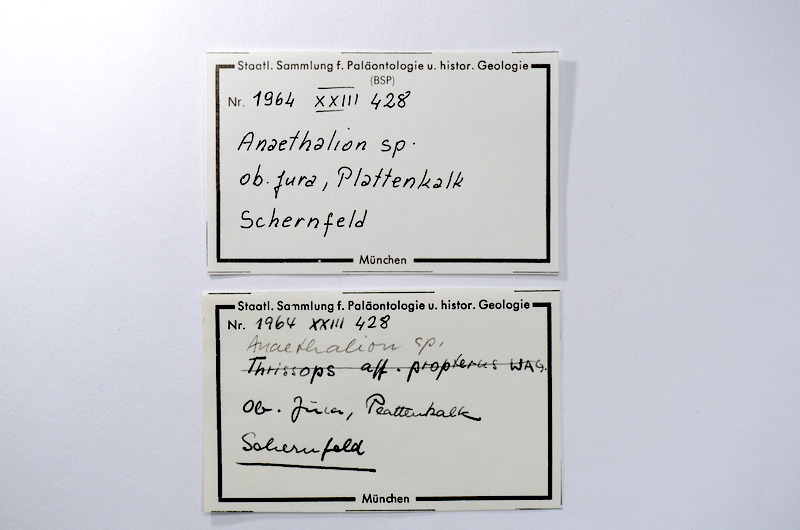 Staatl. Sammlung f. Paläontologie u. histor. Geologie
(BSP)
Nr. 1964 XXIII 428
Anaethalion sp.
ob. Jura, Plattenkalk
Schernfeld
München
Staatl. Sammlung f. Paläontologie u. histor. Geologie
Nr. 1964 XXIII 428
Anaethalion sp.
Thrissops aff. propterus WAG.
Ob. Jura, Plattenkalk
Schernfeld
München